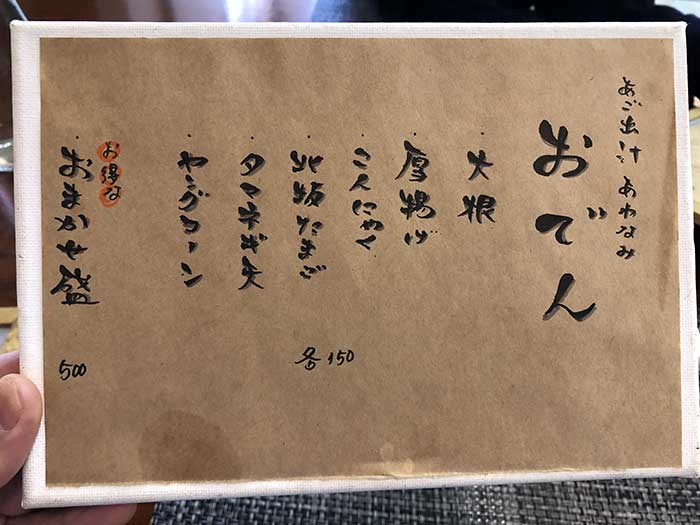 あご出汁 あわなみ
おでん
・大根
・厚揚げ
・こんにゃく
・北坂たまご
・タマネギ天
・ヤングコーン
各150
お得な
・おまかせ盛
500